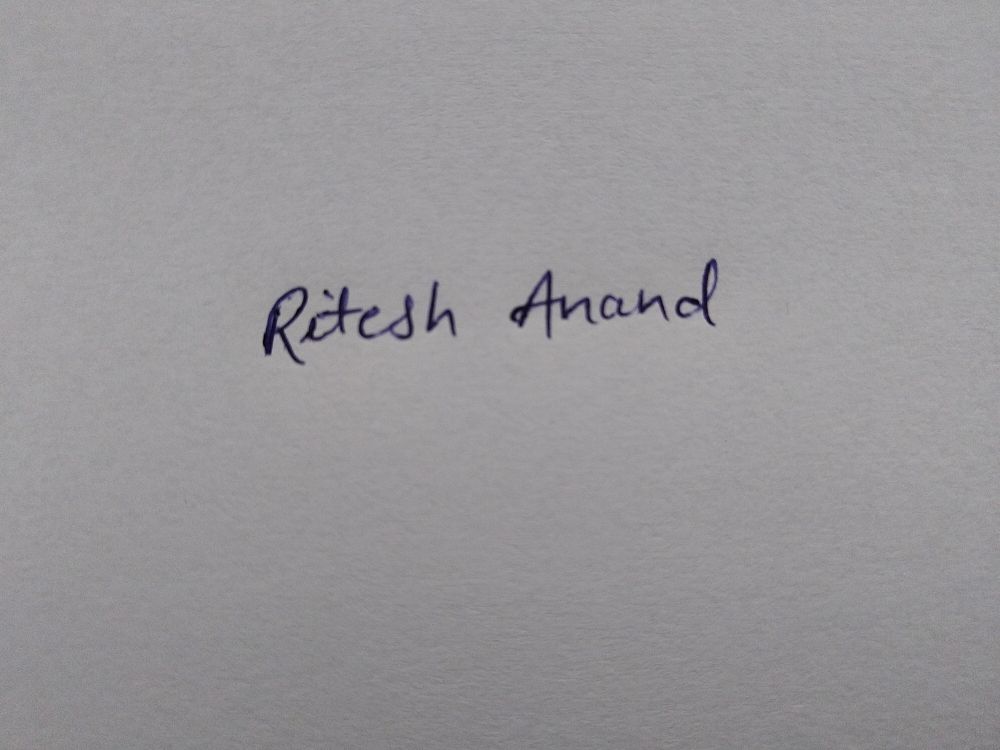 Ritesh Anand